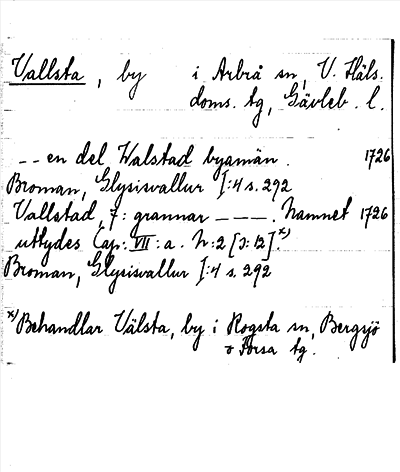 Vallsta, by i Arbrå sn, V. Häls.
doms. tg, Gävleb. l.
-- en del Walstad byamän. 1726
Broman, Glysisvallur I:4 s. 292
Vallstad, 7: grannar ---. Namnet 1726
uttydes Cap: VII: a. N:2 [3:12].x)
Broman, Glysisvallur I:4 s. 292
x) Behandlar Välsta, by i Rogsta sn, Bergsjö
o Forsa tg.